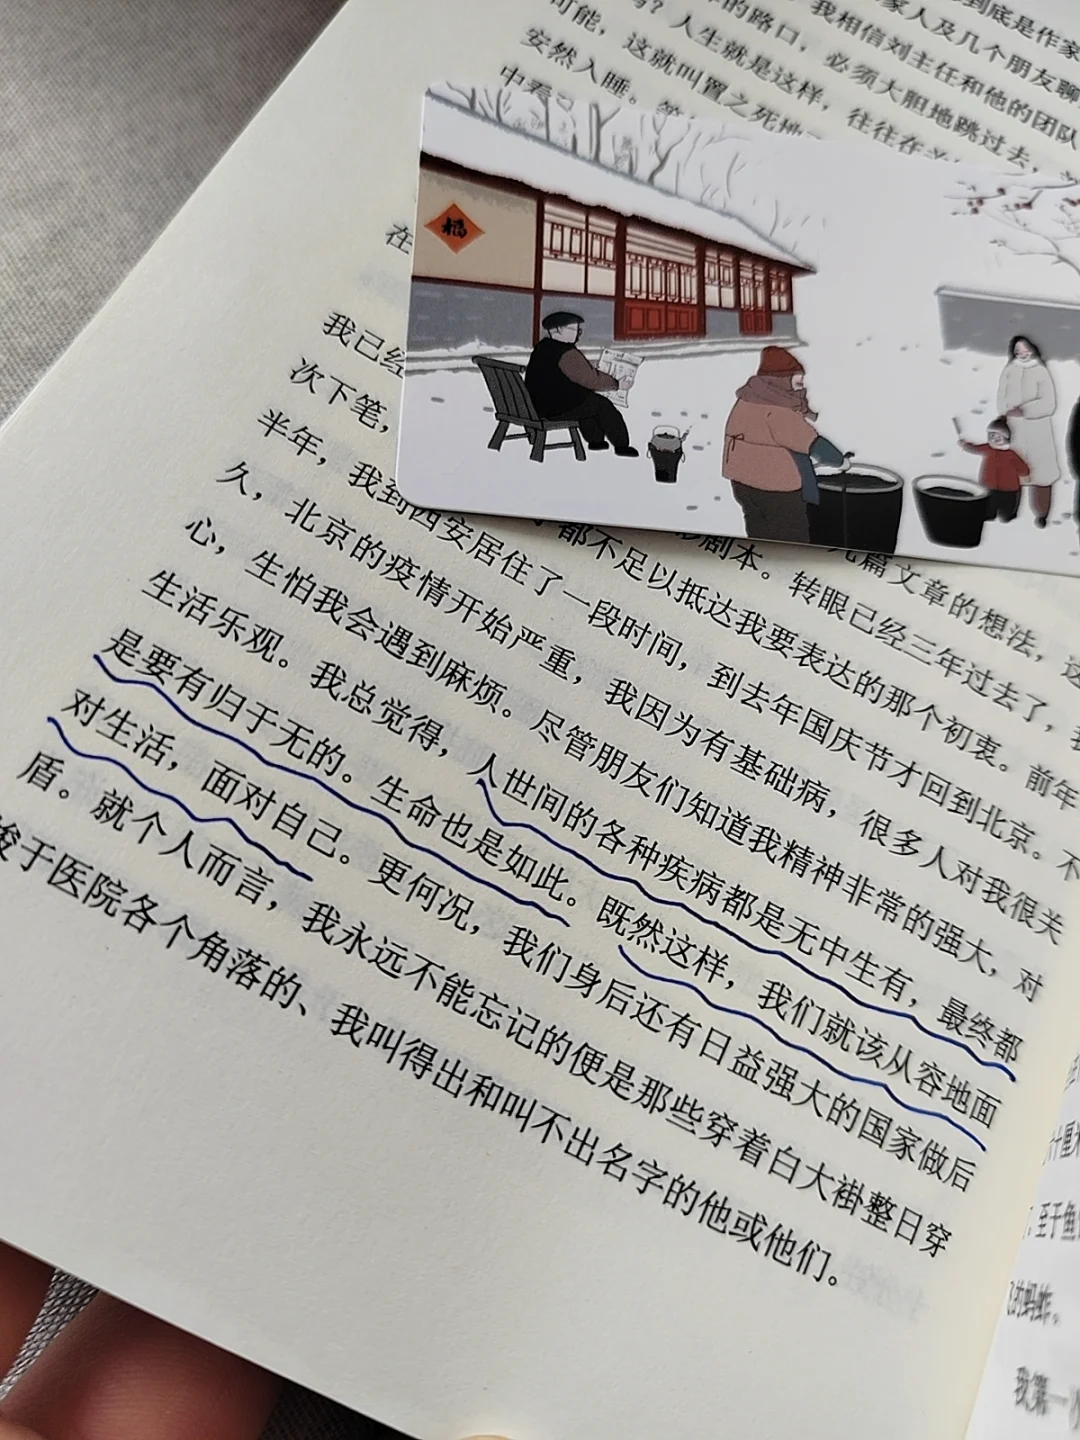 到底是作家
家人及几个朋友聊
的路口，我相信刘主任和他的团队
？人生就是这样，必须大胆地跳过去，
可能，这就叫置之死地
往往在
安然入睡。
中
福
在
我已经
次下笔，
几篇文章的想法，这
半年，我到西安居住了一段时间，到去年国庆节才回到北京。不
都不足以抵达我要表达的那个初衷。前年
剧本。转眼已经三年过去了，我
久，北京的疫情开始严重，我因为有基础病，很多人对我很关
心，生怕我会遇到麻烦。尽管朋友们知道我精神非常的强大，对
生活乐观。我总觉得，人世间的各种疾病都是无中生有，最终都
是要有归于无的。生命也是如此。既然这样，我们就该从容地面
对生活，面对自己。更何况，我们身后还有日益强大的国家做后
盾。就个人而言，我永远不能忘记的便是那些穿着白大褂整日穿
梭于医院各个角落的、我叫得出和叫不出名字的他或他们。
十厘米
至于鱼
的蚂蚱。
我第一